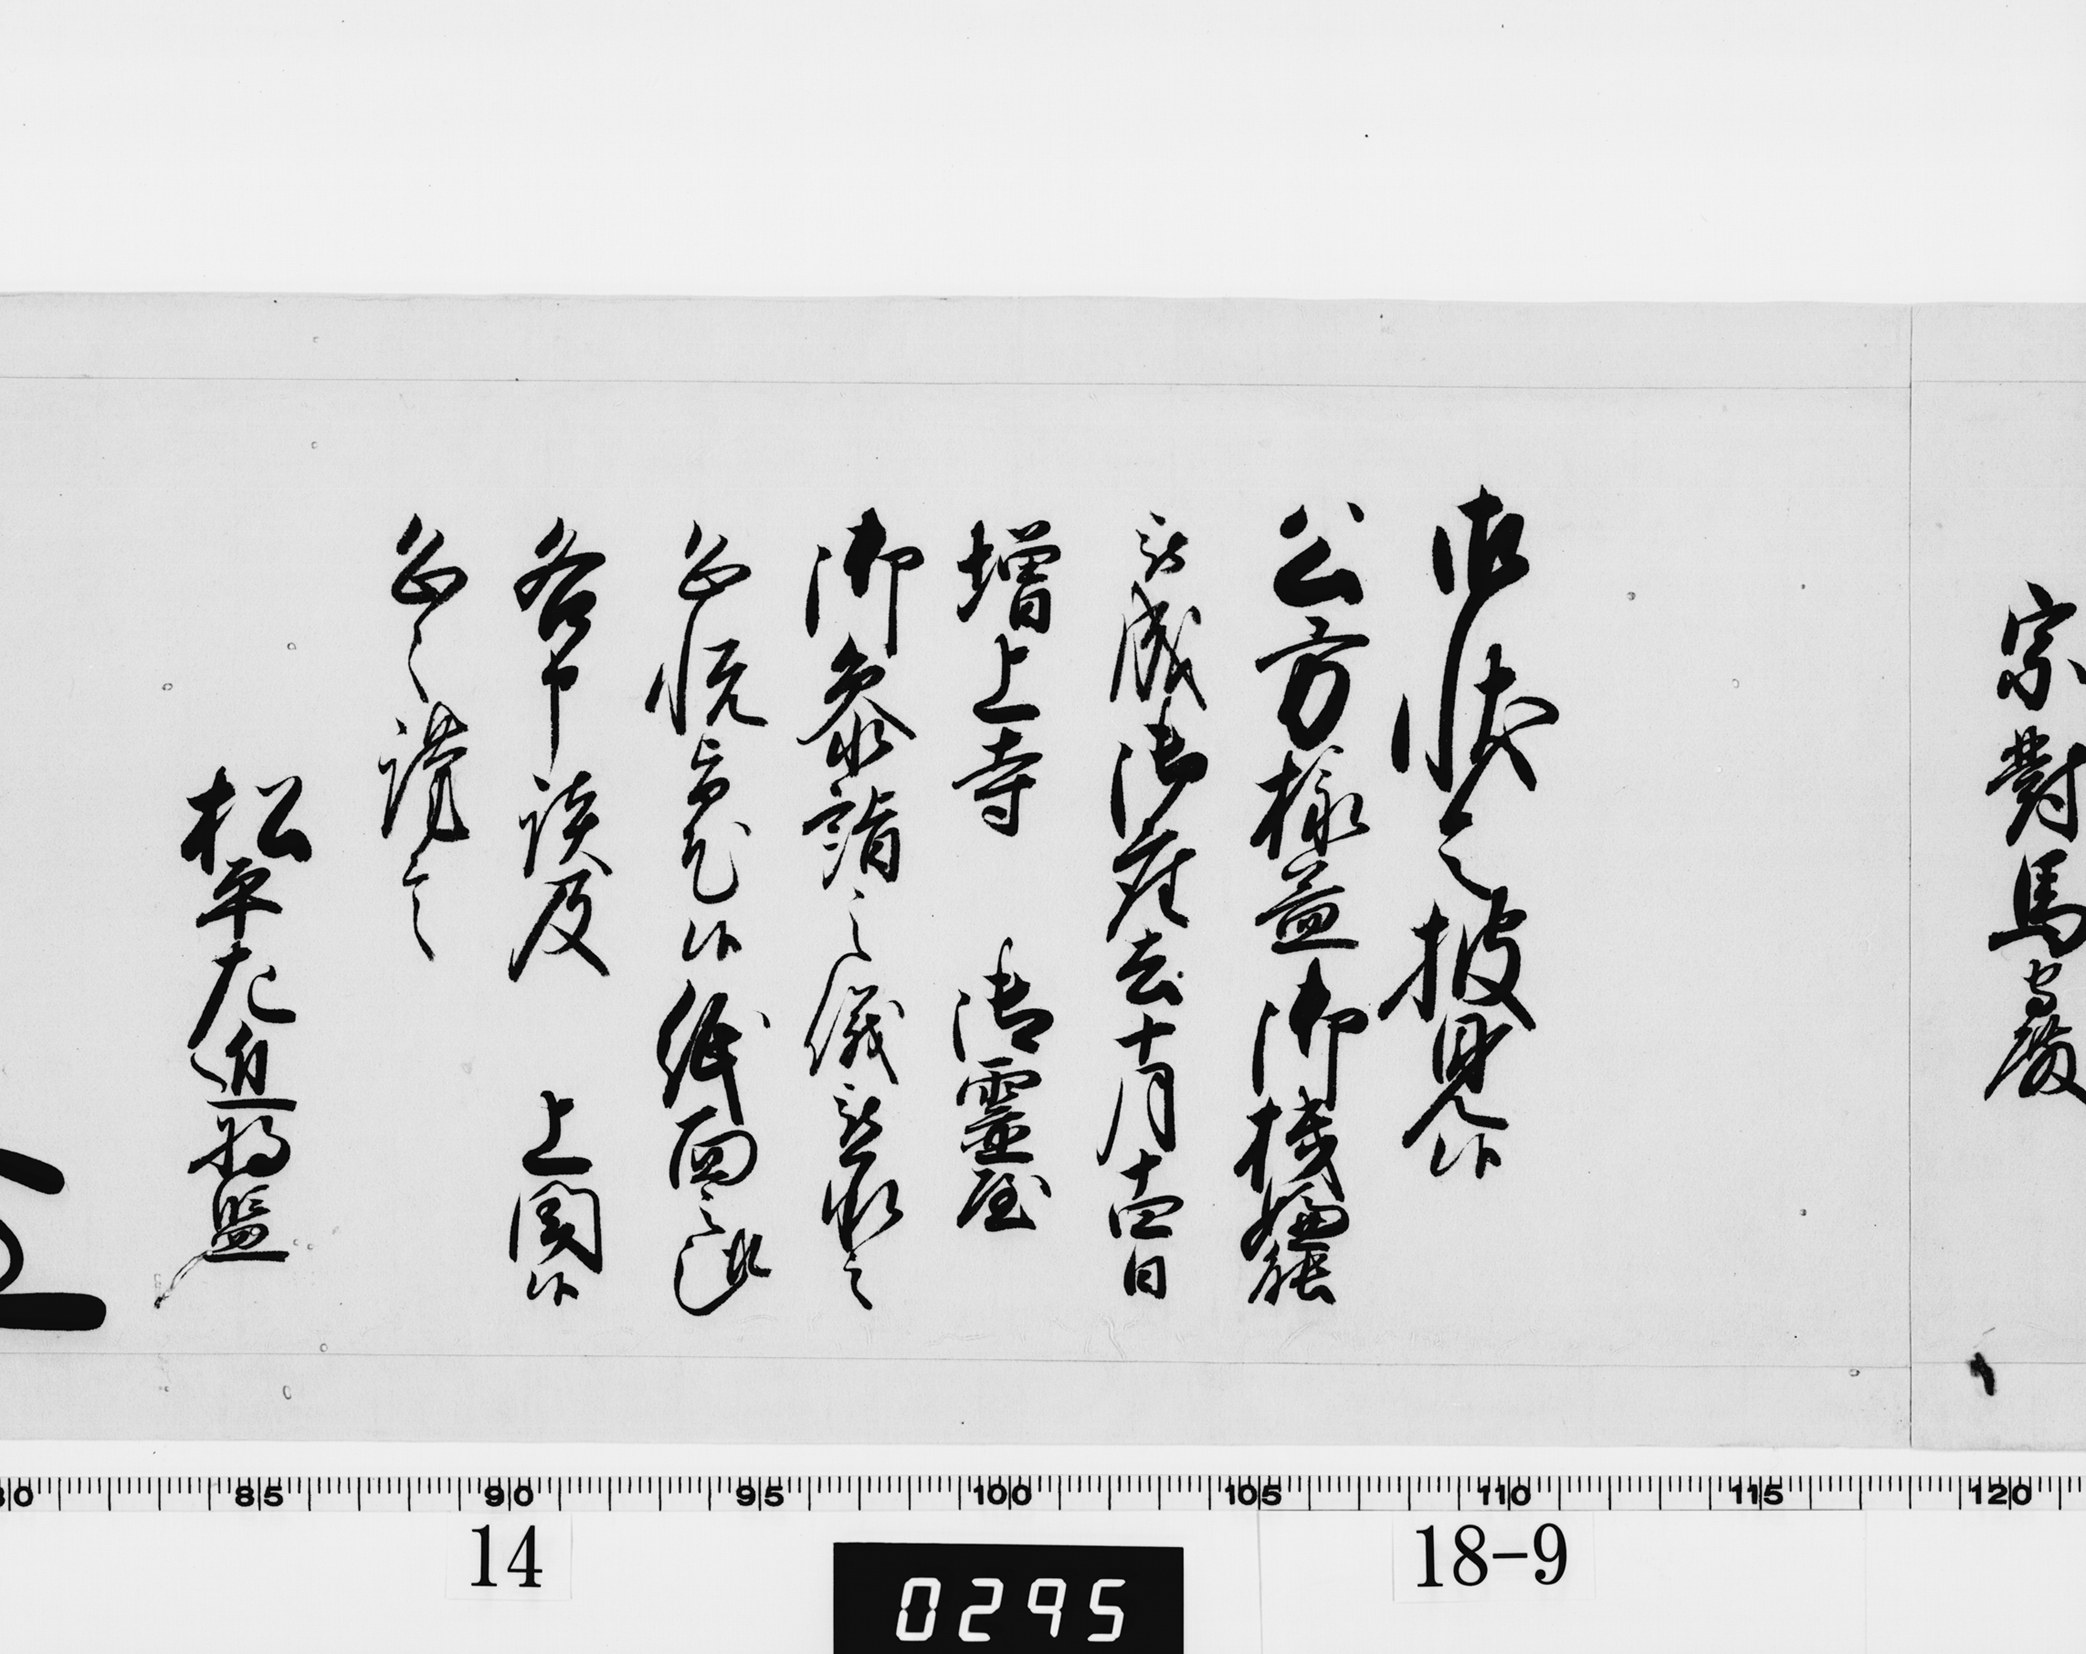 宗對馬守殿
御状令披見候
公方様益御機嫌能
被成御座去十月十四日
増上寺　御靈屋
御參詣之儀被承之
恐悦旨尤候紙面之趣
各申談及　上聞候
恐々謹言
松平左近将監
80 85 90 95 100 105 110 115 120
14
18-9
0295